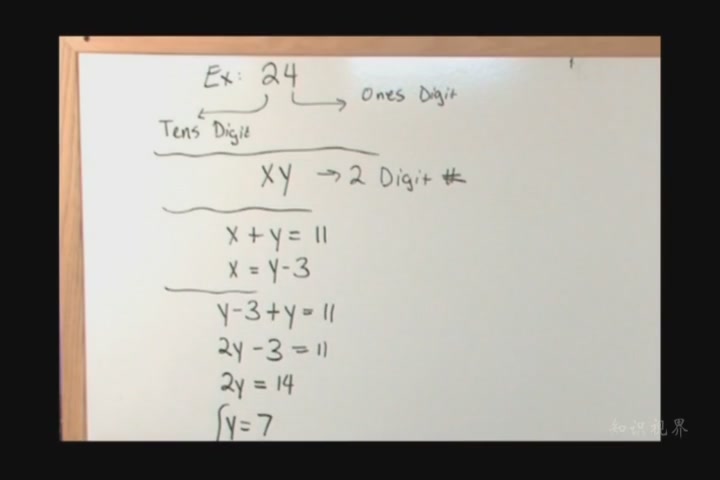 Ex: 24
Ones Digit
Tens Digit
XY → 2 Digit #
x + y = 11
x = y - 3
y - 3 + y = 11
2y - 3 = 11
2y = 14
y = 7
知识视界